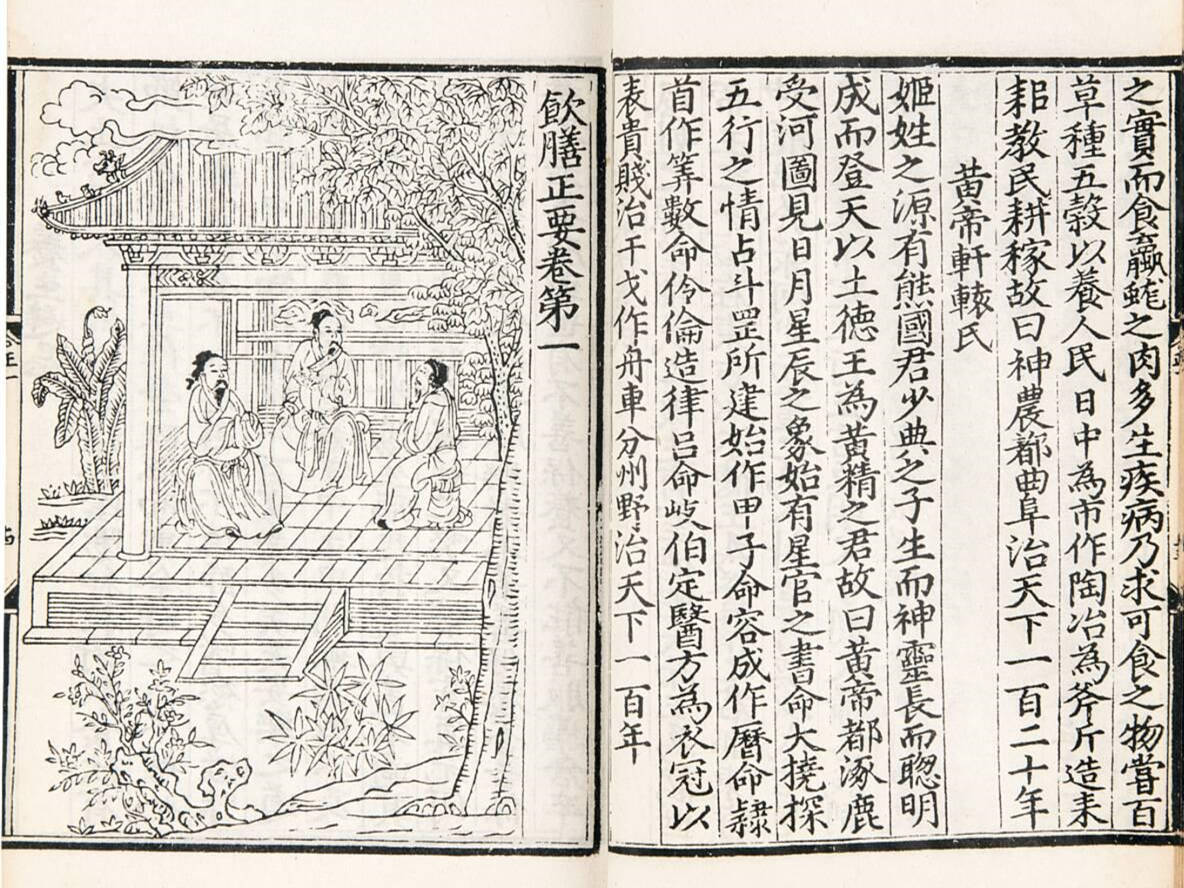 之實而食䖝蠃蛖之肉多生疾病乃求可食之物嘗百
草種五穀以養人民日中為市作陶冶為斧斤造耒
耜教民耕稼故曰神農都曲阜治天下一百二十年
黃帝軒轅氏
姬姓之源有熊國君少典之子生而神靈長而聰明
成而登天以土德王為黃精之君故曰黃帝都涿鹿
受河圖見日月星辰之象始有星官之書命大撓探
五行之情占斗罡所建始作甲子命容成作曆命隸
首作筭數命伶倫造律呂命岐伯定醫方為衣冠以
表貴賤治干戈作舟車分州野治天下一百年
飲膳正要卷第一